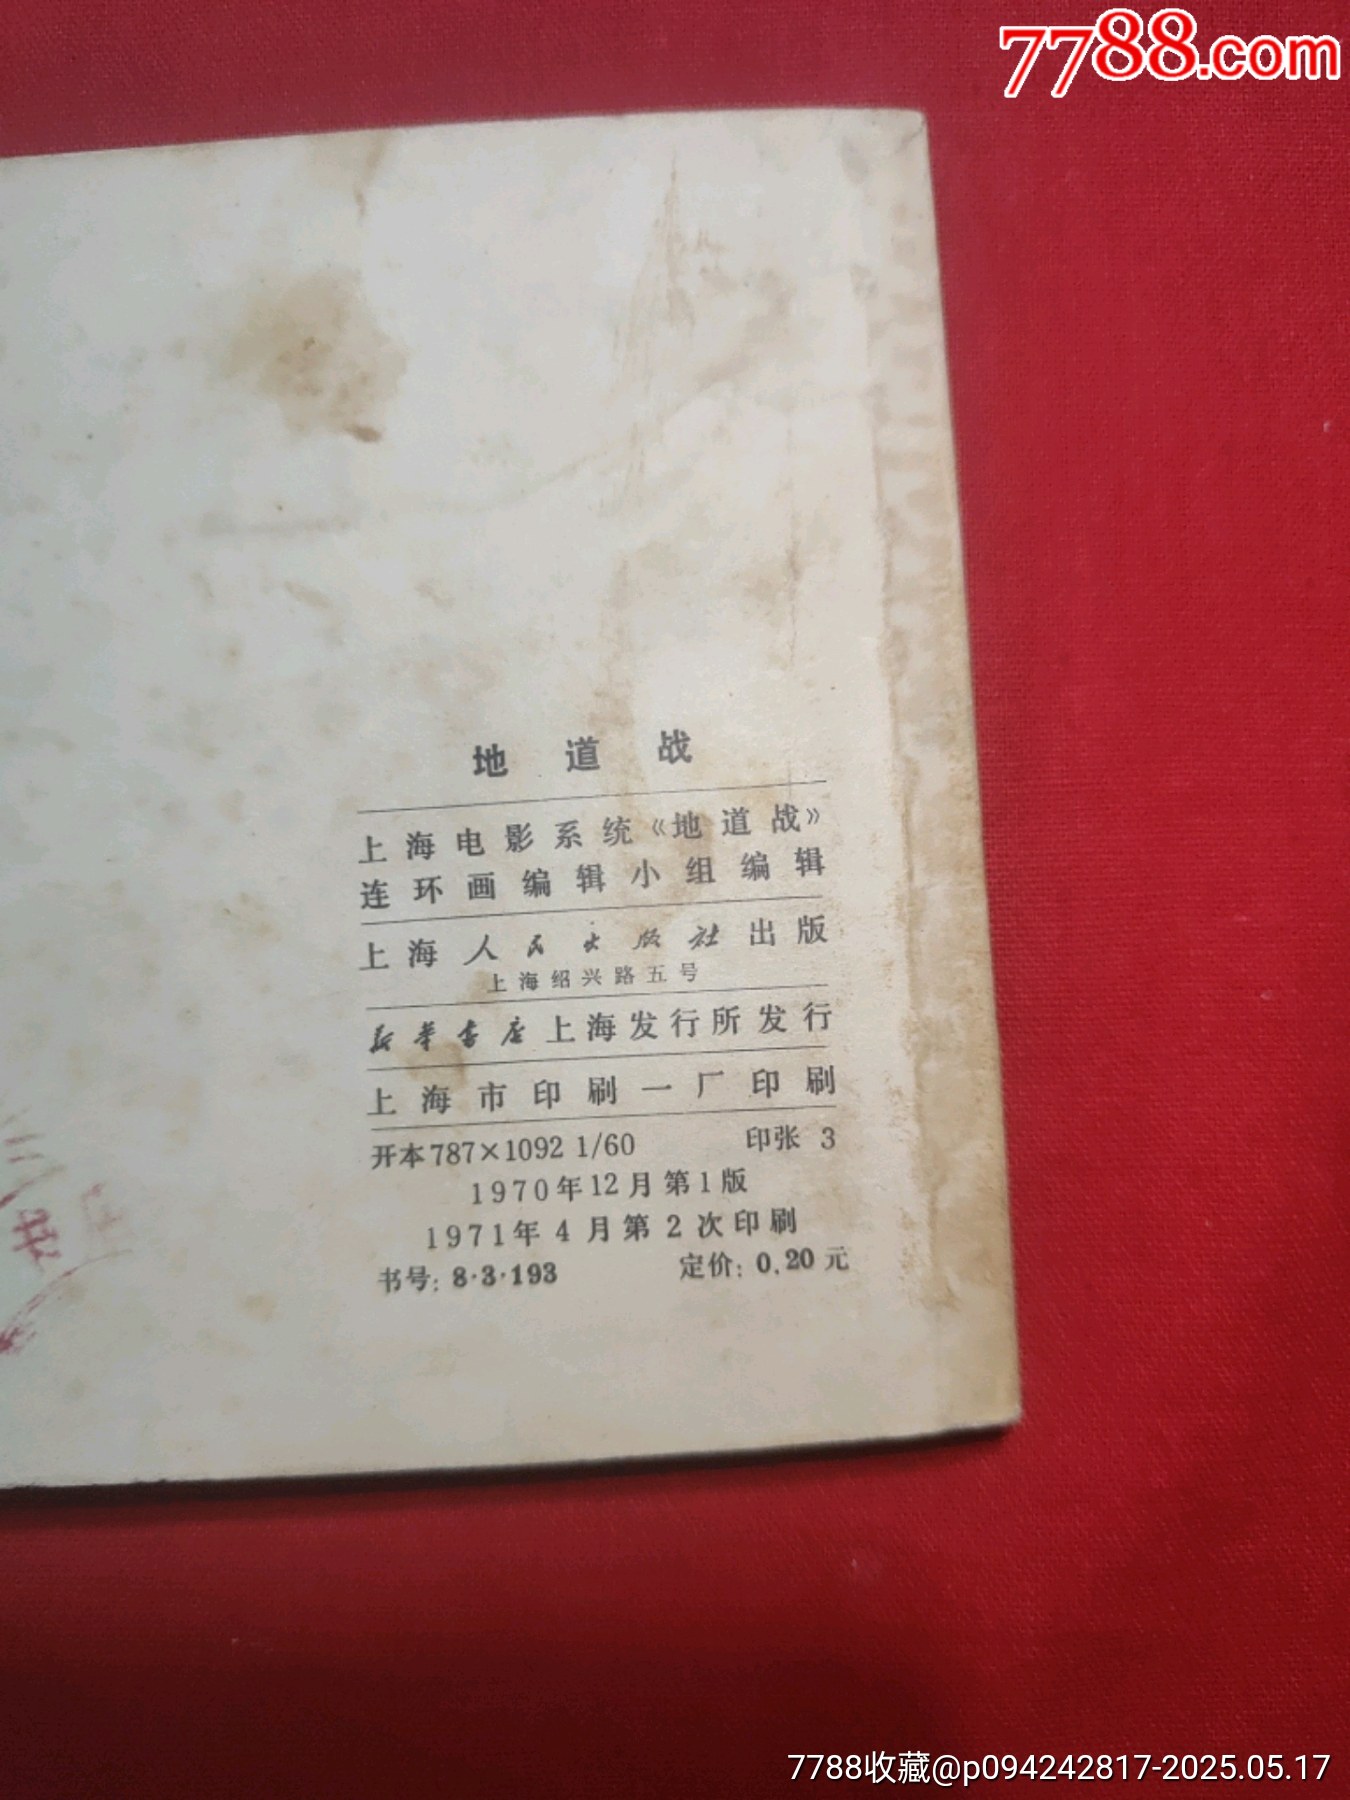 7788.com
地道战
上海电影系统《地道战》
连环画编辑小组编辑
上海人民出版社出版
上海绍兴路五号
新华书店上海发行所发行
上海市印刷一厂印刷
开本787×1092 1/60 印张 3
1970年12月第1版
1971年4月第2次印刷
书号: 8·3·193 定价: 0.20元
7788收藏@p094242817-2025.05.17